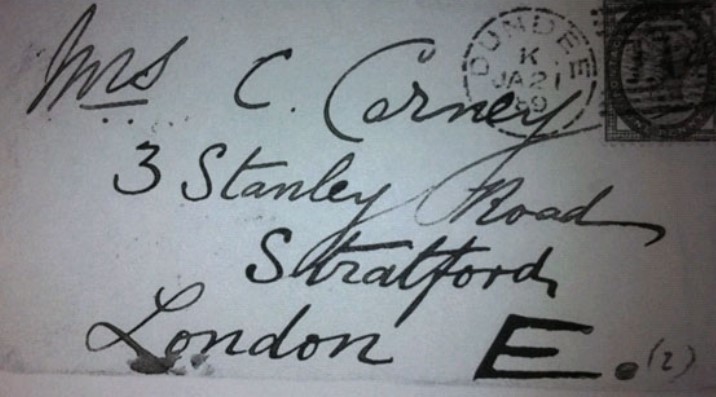 Mrs C. Corney
3 Stanley Road
Stratford,
London E. (2)
DUNDEE
K
JA 21
89